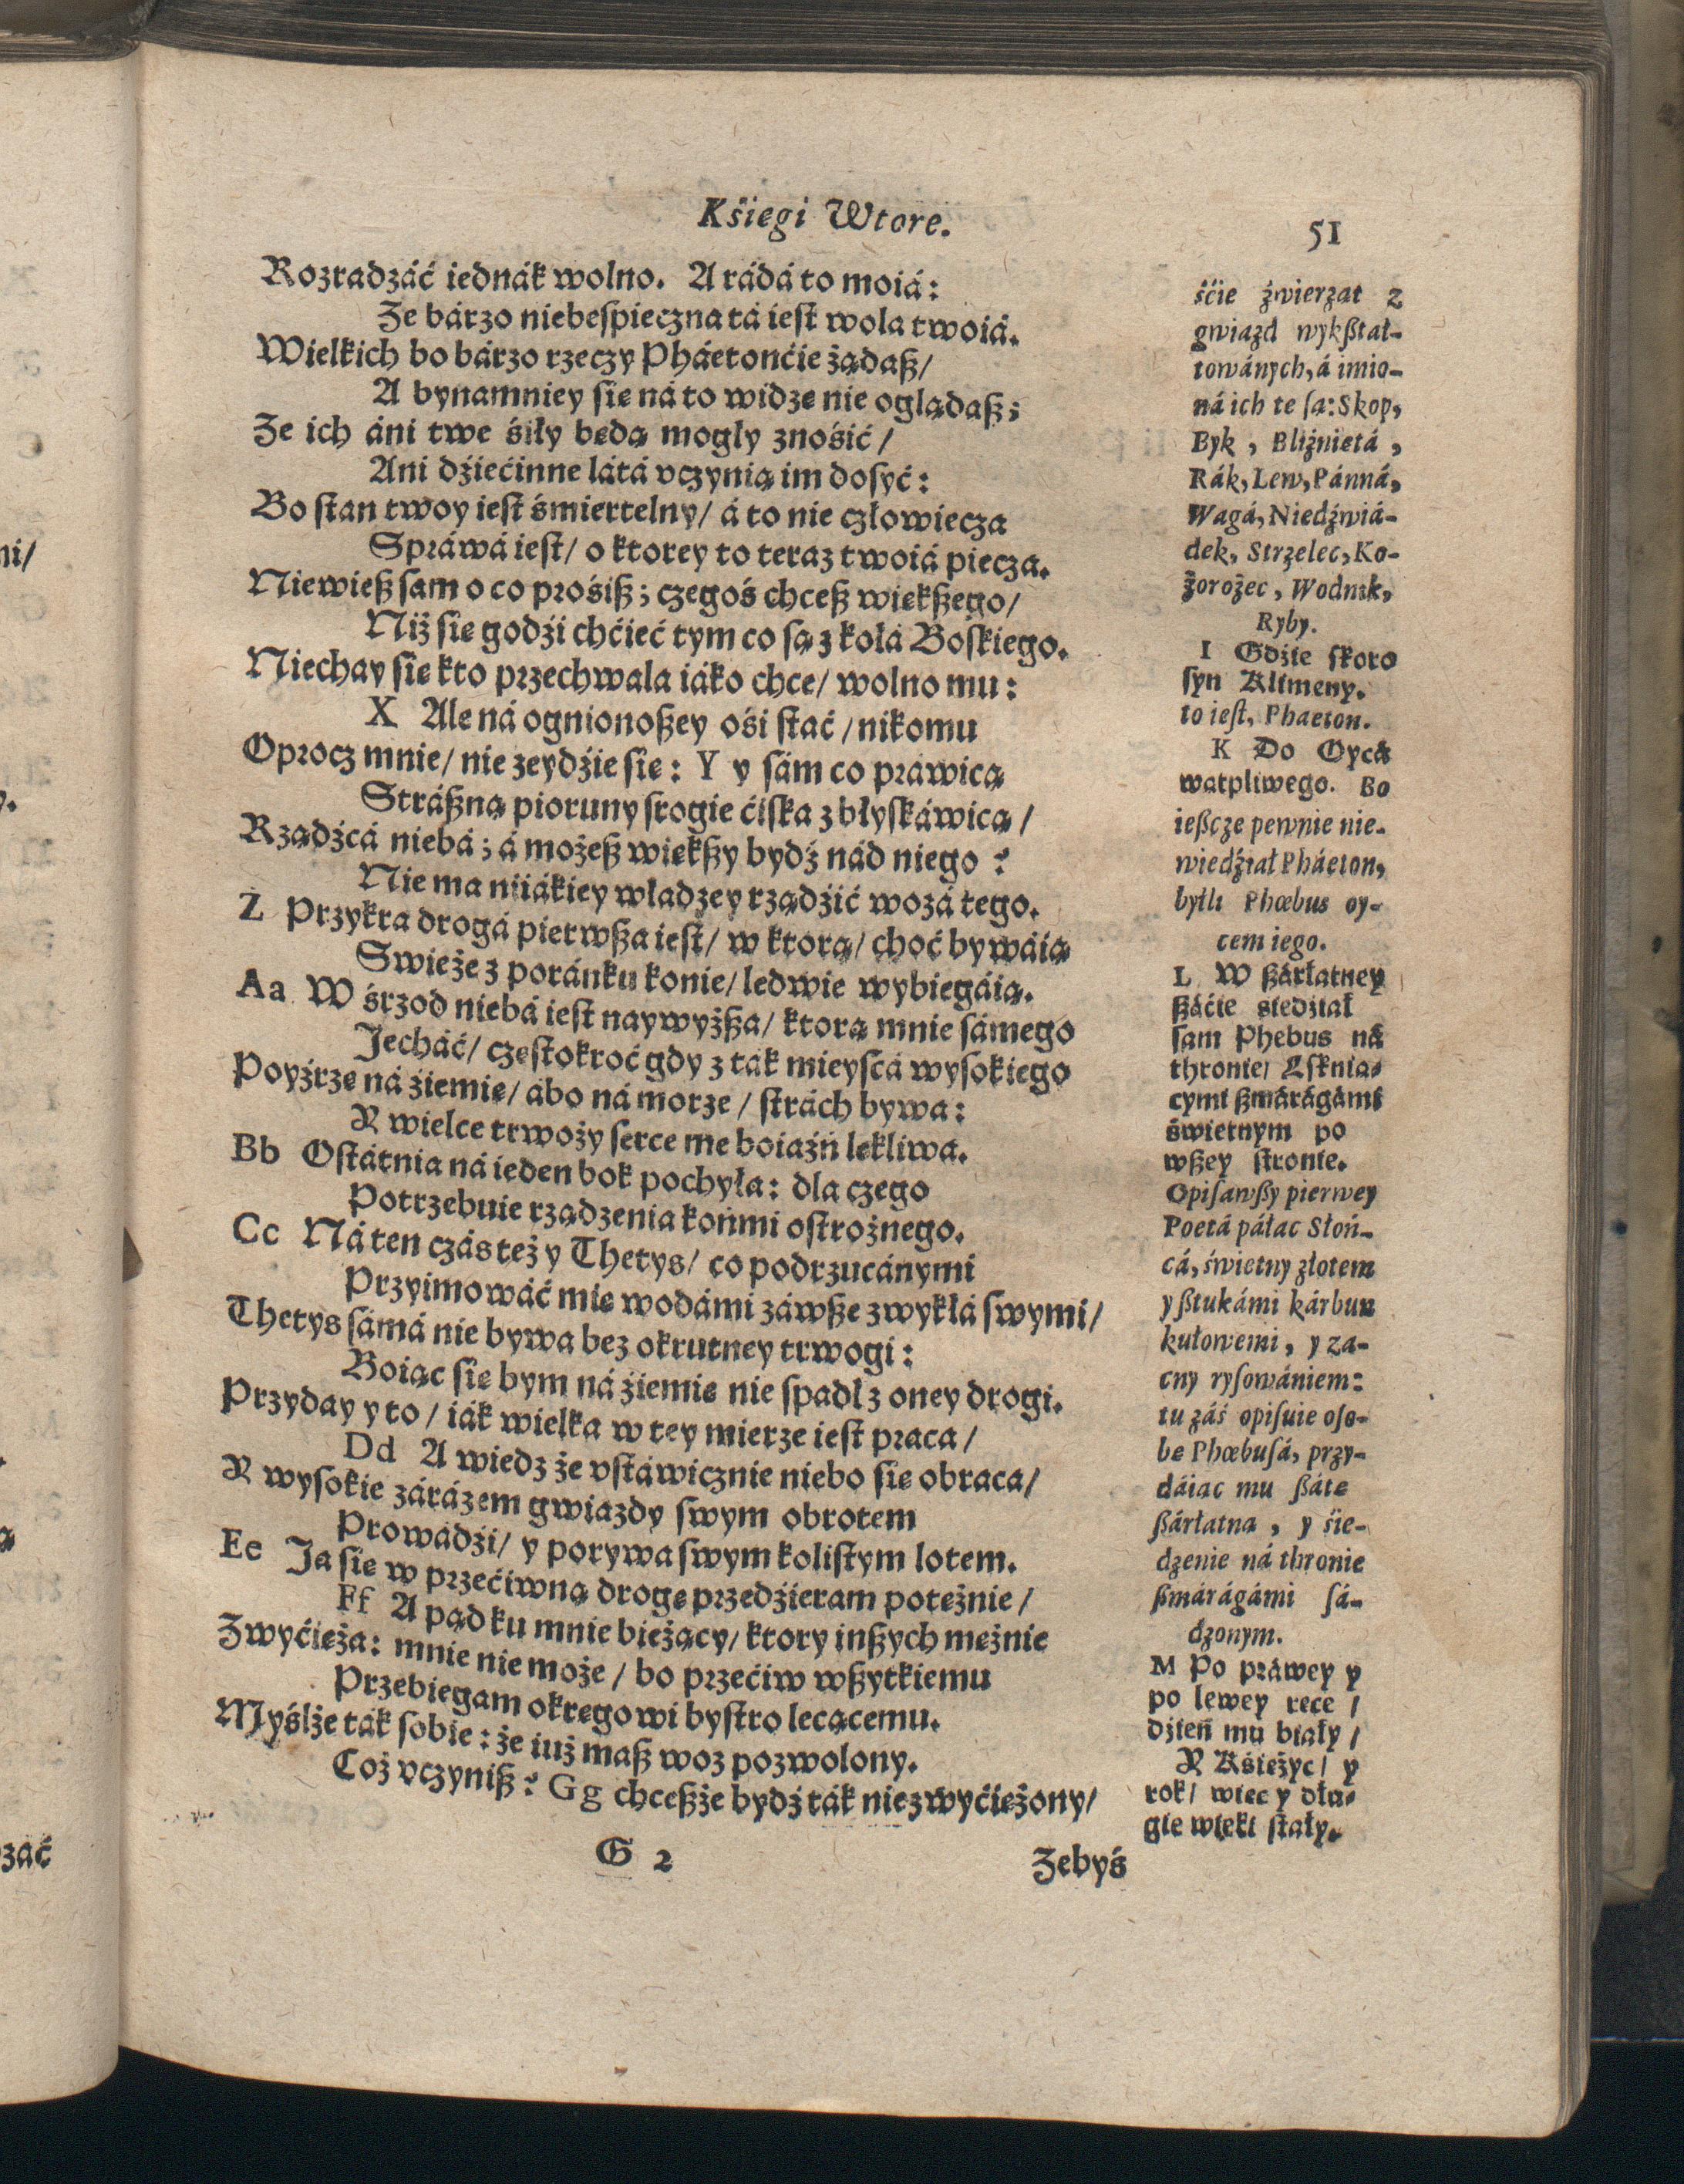 Kśiegi Wtore.
51
Rozradzáć iednák wolno. A rádá to moiá:
Że bárzo niebeſpieczna tá ieſt wola twoiá.
Wielkich bo bárzo rzeczy Pháetonćie żądaß/
A bynamniey ſie ná to widzę nie oglądaß;
Że ich áni twe śiły będą mogły znośić/
Ani dźiećinne látá vczynią im doſyć:
Bo ſtan twoy ieſt śmiertelny/ á to nie człowiecza
Spráwá ieſt/ o ktorey to teraz twoiá piecza.
Niewieß ſam o co prośiß; czegoś chceß wiekßego/
Niż ſie godźi chćieć tym co ſą z kołá Boſkiego.
Niechay ſie kto przechwala iáko chce/ wolno mu:
X Ale ná ognionoßey ośi ſtać/ nikomu
Oprocz mnie/ nie zeydźie ſie: Y y ſám co práwicą
Stráßną pioruny ſrogie ćiſka z błyſkáwicą/
Rządźcá niebá; á możeß wiekßy bydź nád niego?
Nie ma niiákiey władzey rządźić wozá tego.
Z Przykra drogá pierwßa ieſt/ w ktorą/ choć bywáią
Swieże z poránku konie/ ledwie wybiegáią.
Aa W śrzod niebá ieſt naywyżßa/ ktorą mnie ſámego
Jecháć/ częſtokroć gdy z ták mieyſcá wyſokiego
Poyźrzę ná źiemię/ ábo ná morze/ ſtrách bywa:
Y wielce trwoży ſerce me boiaźń lękliwa.
Bb Oſtátnia ná ieden bok pochyła: dla czego
Potrzebuie rządzenia końmi oſtrożnego.
Cc Ná ten czás też y Thetys/ co podrzucánymi
Przyimowáć mię wodámi záwße zwykłá ſwymi/
Thetys ſámá nie bywa bez okrutney trwogi:
Boiąc ſie bym ná źiemię nie ſpadł z oney drogi.
Przyday y to/ iák wielka w tey mierze ieſt praca/
Dd A wiedz że vſtáwicznie niebo ſie obraca/
Y wyſokie zárázem gwiazdy ſwym obrotem
Prowádźi/ y porywa ſwym koliſtym lotem.
Ee Ja ſie w przećiwną drogę przedźieram poteżnie/
Ff A pąd ku mnie bieżący/ ktory inßych meżnie
Zwyćieża: mnie nie może/ bo przećiw wßytkiemu
Przebiegam okręgowi byſtro lecącemu.
Myślże ták ſobie: że iuż maß woz pozwolony.
Coż vczyniß? Gg chceßże bydź ták niezwyćieżony/
G 2
Żebyś
śćie źwierząt z
gwiazd wykßtał-
towánych, á imio-
ná ich te ſą: Skop,
Byk, Bliźniętá,
Rák, Lew, Pánná,
Wagá, Niedźwiá-
dek, Strzelec, Ko-
żorożec, Wodnik,
Ryby.
I Gdźie ſkoro
ſyn Klimeny.
to ieſt, Phaeton.
K Do Oycá
watpliwego. Bo
ießcze pewnie nie-
wiedźiał Pháeton,
byłli Phœbus oy-
cem iego.
L W ßárłatney
ßáćie siedźiał
ſam Phebus ná
thronie/ Lſknią-
cymi ßmárágámi
świetnym po
wßey ſtronie.
Opiſawßy pierwey
Poetá páłac Słoń-
cá, świetny złotem
y ßtukámi kárbun
kułowemi, y za-
cny ryſowániem:
tu záś opiſuie oſo-
be Phœbuſá, przy-
dáiac mu ßáte
ßárłatna, y śie-
dzenie ná thronie
ßmárágámi ſá-
dzonym.
M Po práwey y
po lewey rece/
dźień mu biały/
Y Kśieżyc/ y
rok/ wiec y dłu-
gie wieki ſtały.